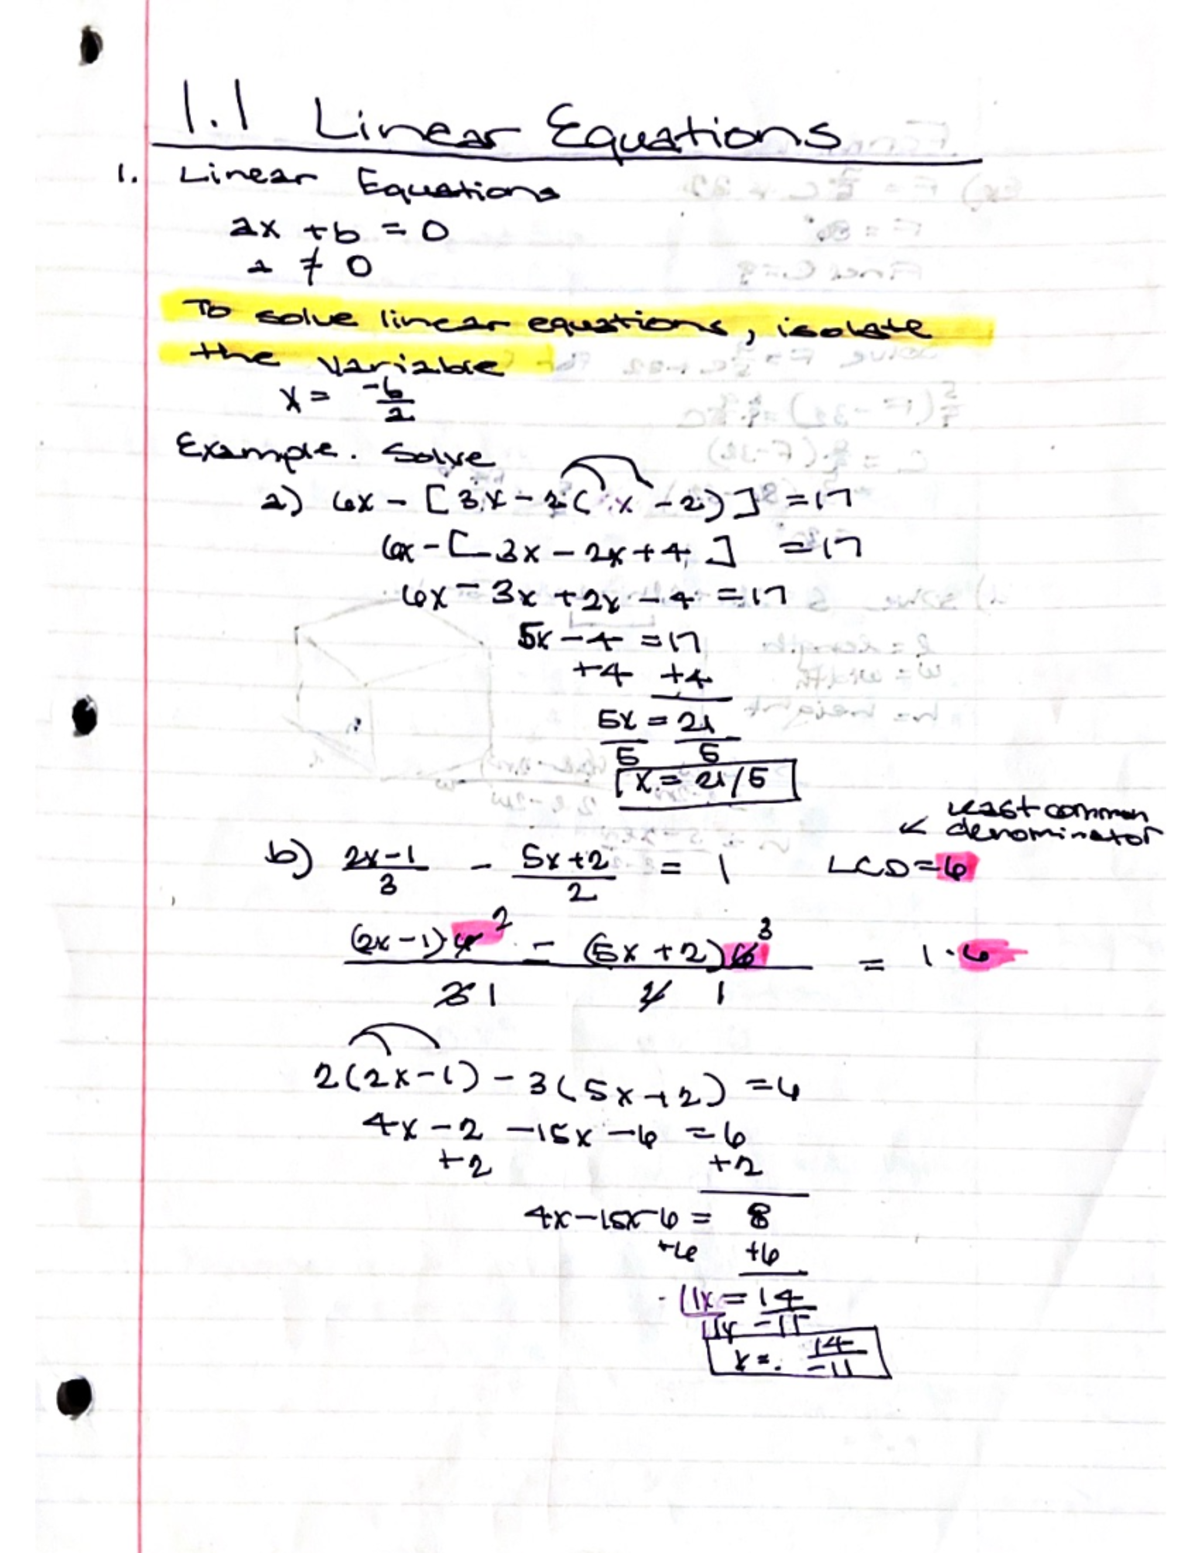 1.1 Linear Equations
1. Linear Equations
ax + b = 0
a ≠ 0
To solve linear equations, isolate
the variable
x = -b/a
Example. Solve
a) 6x - [3x - 2(x - 2)] = 17
6x - [3x - 2x + 4] = 17
6x - 3x + 2x - 4 = 17
5x - 4 = 17
+4 +4
5x = 21
5 5
x = 21/5
Least common
denominator
b) (2x-1)/3 - (5x+2)/2 = 1 LCD = 6
(2x-1)·6 2 - (5x+2) 6 3 = 1·6
3 1 2 1
2(2x-1) - 3(5x+2) = 6
4x - 2 - 15x - 6 = 6
+2 +2
4x - 15x - 6 = 8
+6 +6
-11x = 14
-11
x = 14/-11